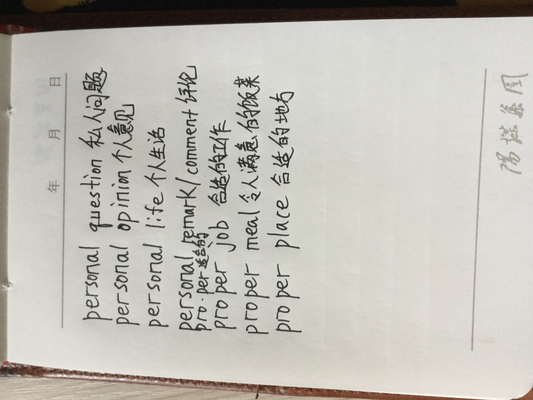 年 月 日
personal question 私人问题
personal opinion 个人意见
personal life 个人生活
personal remark/comment 评论
pro·per 适合的
proper job 合适的工作
proper meal 令人满意的饭菜
proper place 合适的地方
阳煤集团